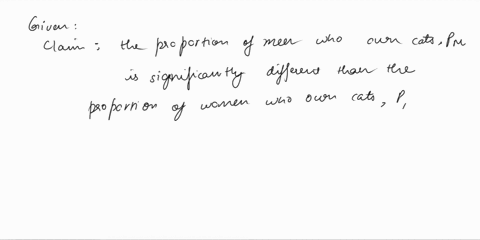 Given:
Claim: the proportion of men who own cats, PM
is significantly different than the
proportion of women who own cats, P,